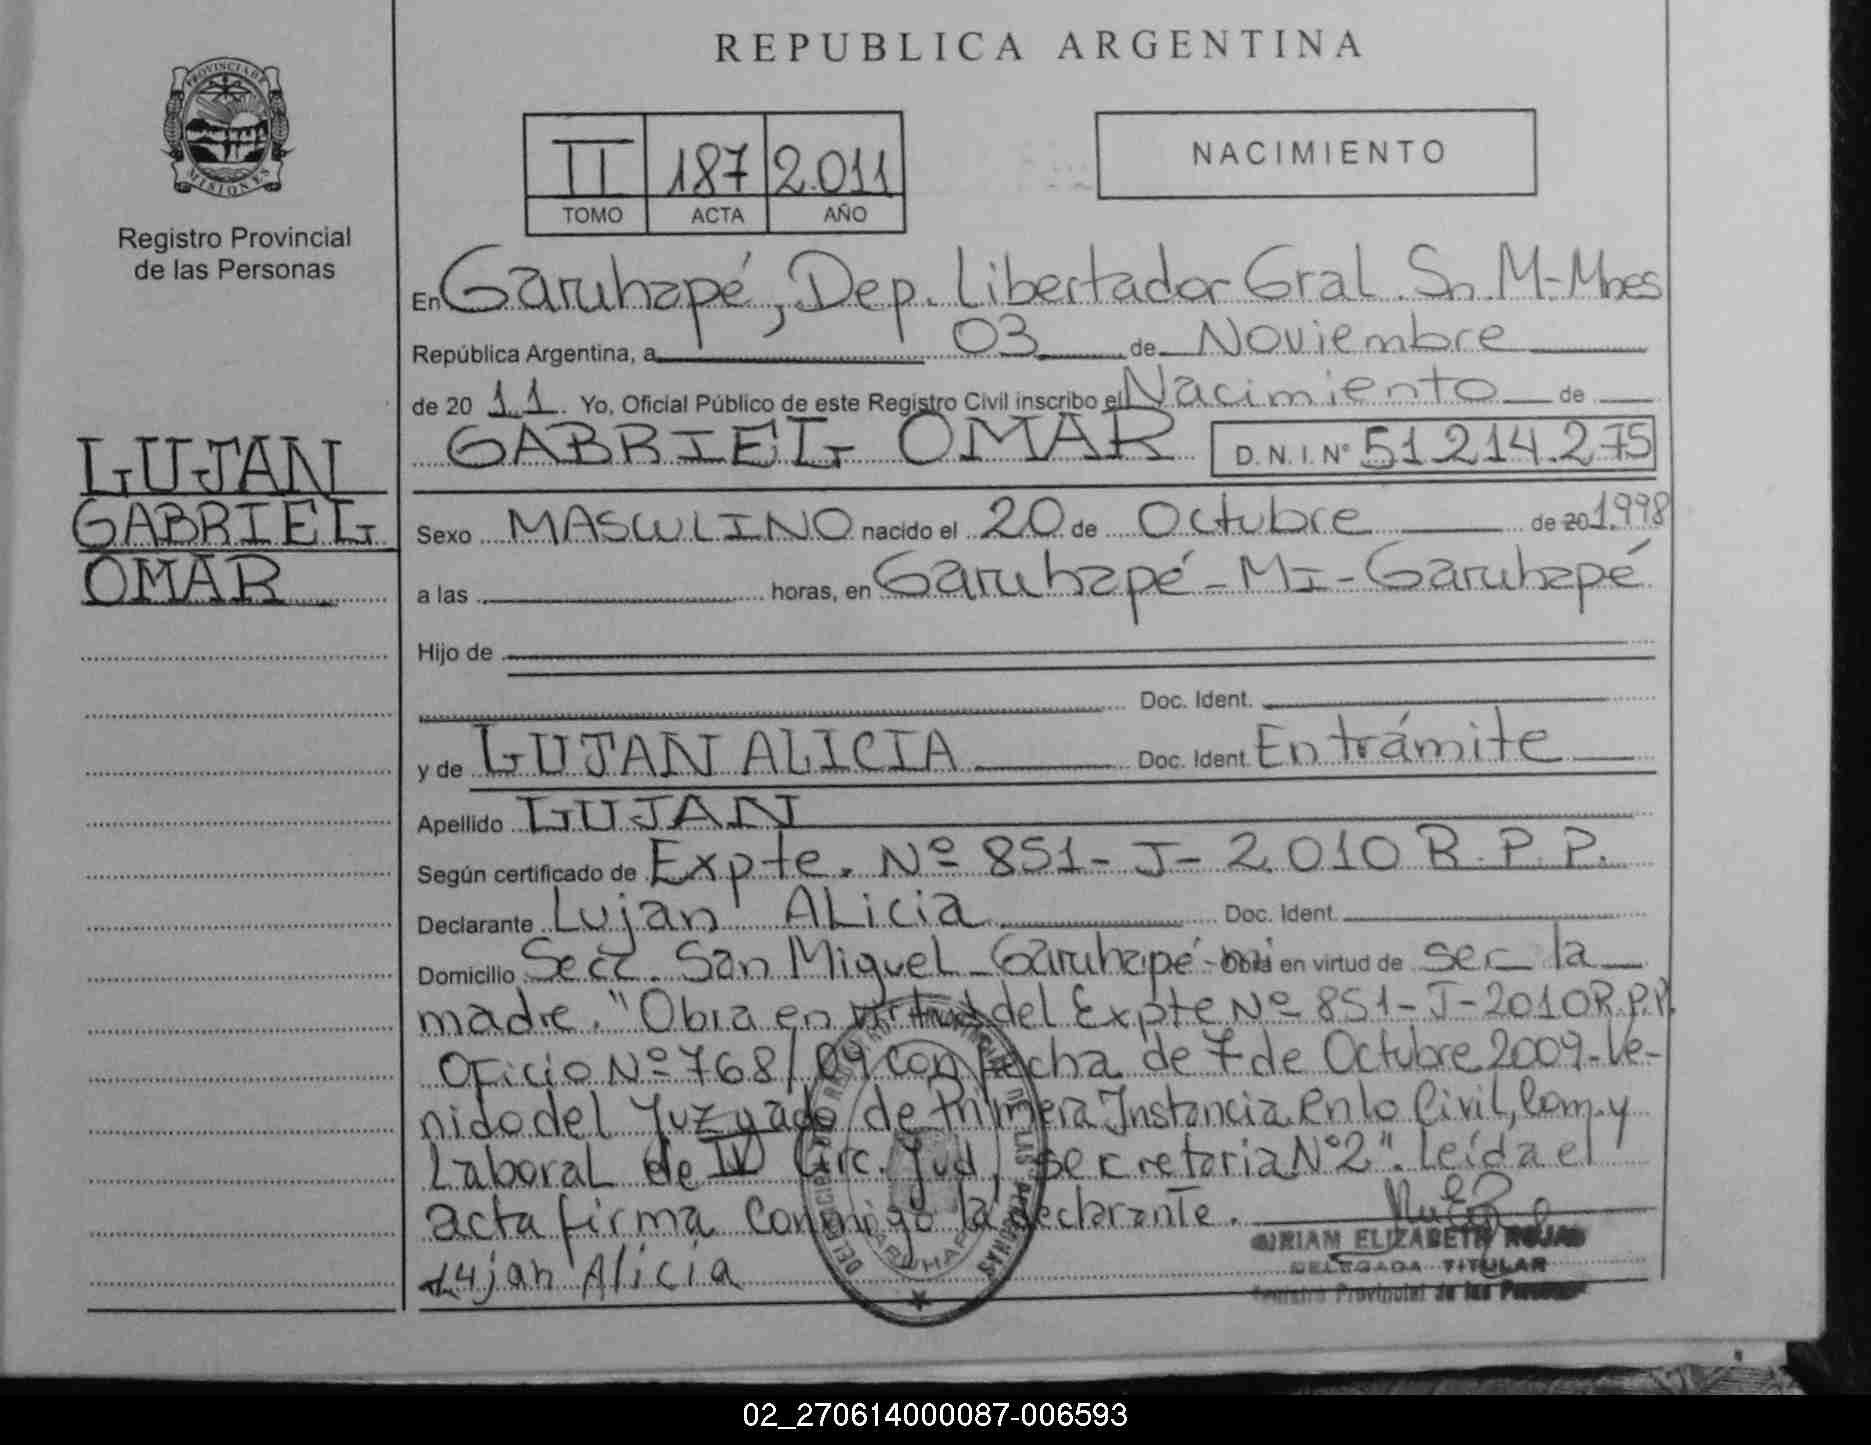 REPUBLICA ARGENTINA
PROVINCIA DE
MISIONES
Registro Provincial
de las Personas
II 187 2.011
TOMO ACTA AÑO
NACIMIENTO
En Garuhapé, Dep. Libertador Gral. Sn. M-Mnes
República Argentina, a 03 de Noviembre
de 20 11. Yo, Oficial Público de este Registro Civil inscribo el Nacimiento de
GABRIEL OMAR D.N.I. Nº 51.214.275
LUJAN
GABRIEL
OMAR
Sexo MASCULINO nacido el 20 de Octubre de 20 1.998
a las horas, en Garuhapé-MI-Garuhapé
Hijo de
Doc. Ident.
y de LUJAN ALICIA Doc. Ident. En trámite
Apellido LUJAN
Según certificado de Expte. Nº 851-J-2.010 R.P.P.
Declarante Lujan ALicia Doc. Ident.
Domicilio Secc. San Miguel-Garuhapé- en virtud de ser la
madre. "Obra en virtud del Expte Nº 851-J-2010 R.P.P.
Oficio Nº 768/09 con fecha de 7 de Octubre 2009-Ve-
nido del Juzgado de Primera Instancia en lo Civil, Com. y
Laboral de IV Circ. Jud, secretaria Nº2". leída el
acta firma conmigo la declarante.
Lujan Alicia
MIRIAM ELIZABETH ROJAS
DELEGADA TITULAR
Registro Provincial de las Personas
02_270614000087-006593